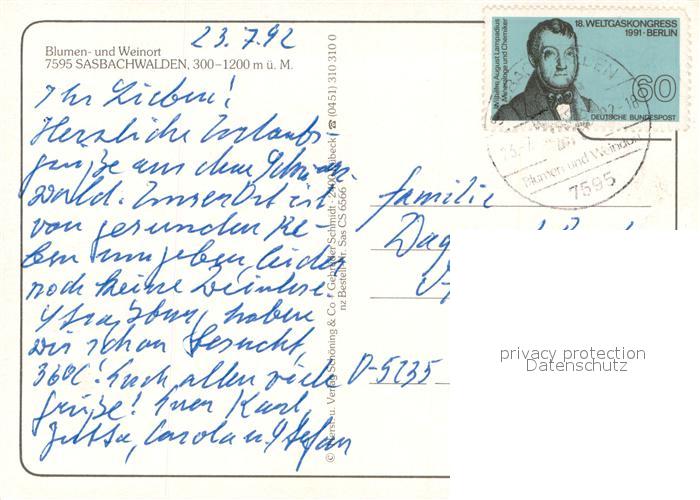 23.7.92
Blumen- und Weinort
7595 SASBACHWALDEN, 300–1200 m ü. M.
Ihr Lieben!
Herzliche Urlaubs-
grüße aus dem Schwarz-
wald. Unser Ort ist
von gesunden Re-
ben umgeben, leider
noch keine Weinlese.
Straßburg haben
wir schon besucht,
36°C! Euch allen viele
Grüße! Euer Karl,
Jutta, Carola u. Stefan
Verlag Schöning & Co + Gebrüder Schmidt · Lübeck ☎ (0451) 310 310 0
Bestell-Nr. Sas CS 6566
Wilhelm August Lampadius
Metallurge und Chemiker
18. WELTGASKONGRESS
1991 · BERLIN
60
DEUTSCHE BUNDESPOST
Blumen- und Weindorf
7595
Familie
D-5235
privacy protection
Datenschutz